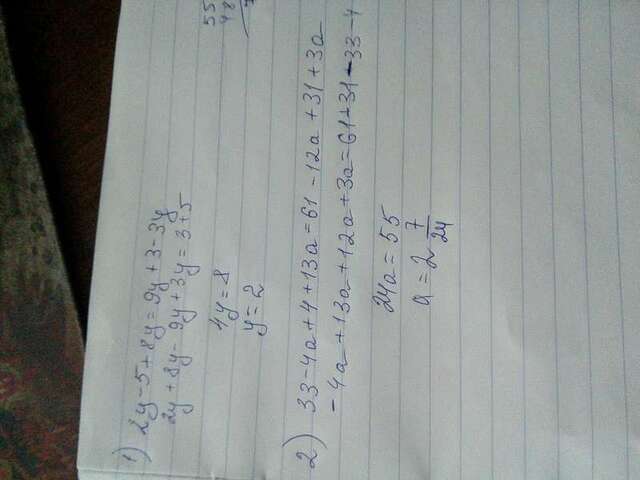 1) 2y-5+8y=9y+3-3y
2y+8y-9y+3y=3+5
4y=8
y=2
2) 33-4a+4+13a=61-12a+31+3a
-4a+13a+12a+3a=61+31-33-4
24a=55
a=2 7/24
55
48
7